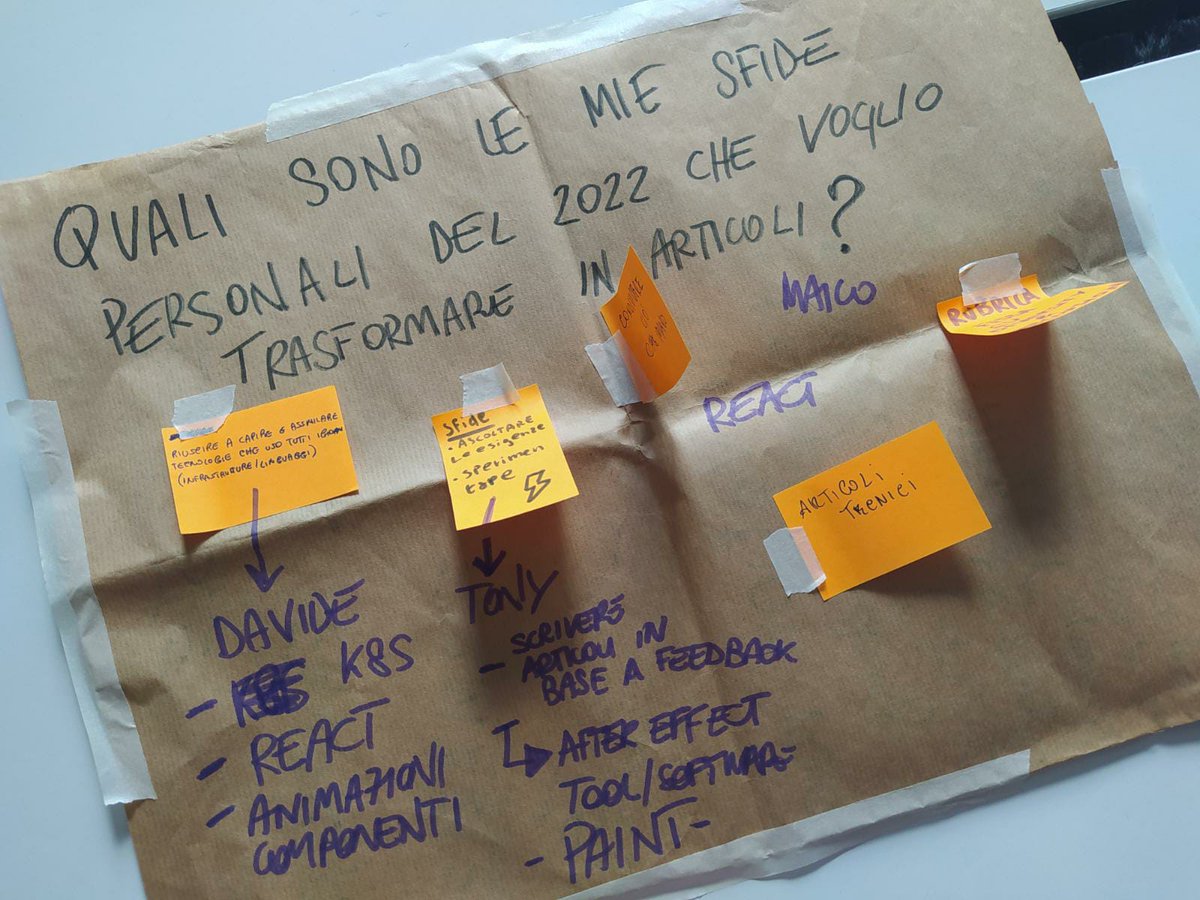 QUALI SONO LE MIE SFIDE
PERSONALI DEL 2022 CHE VOGLIO
TRASFORMARE IN ARTICOLI?
RIUSCIRE A CAPIRE E ASSIMILARE
TECNOLOGIE CHE USO TUTTI I GIORNI
(INFRASTRUTTURE/LINGUAGGI)
DAVIDE
- K8S
- REACT
- ANIMAZIONI
COMPONENTI
Sfide
• ASCOLTARE
Le esigenze
- sperimen
tare
TONY
- SCRIVERE
ARTICOLI IN
BASE A FEEDBACK
AFTER EFFECT
TOOL/SOFTWARE
- PAINT-
MAICO
REACT
ARTICOLI
TECNICI
RUBRICA